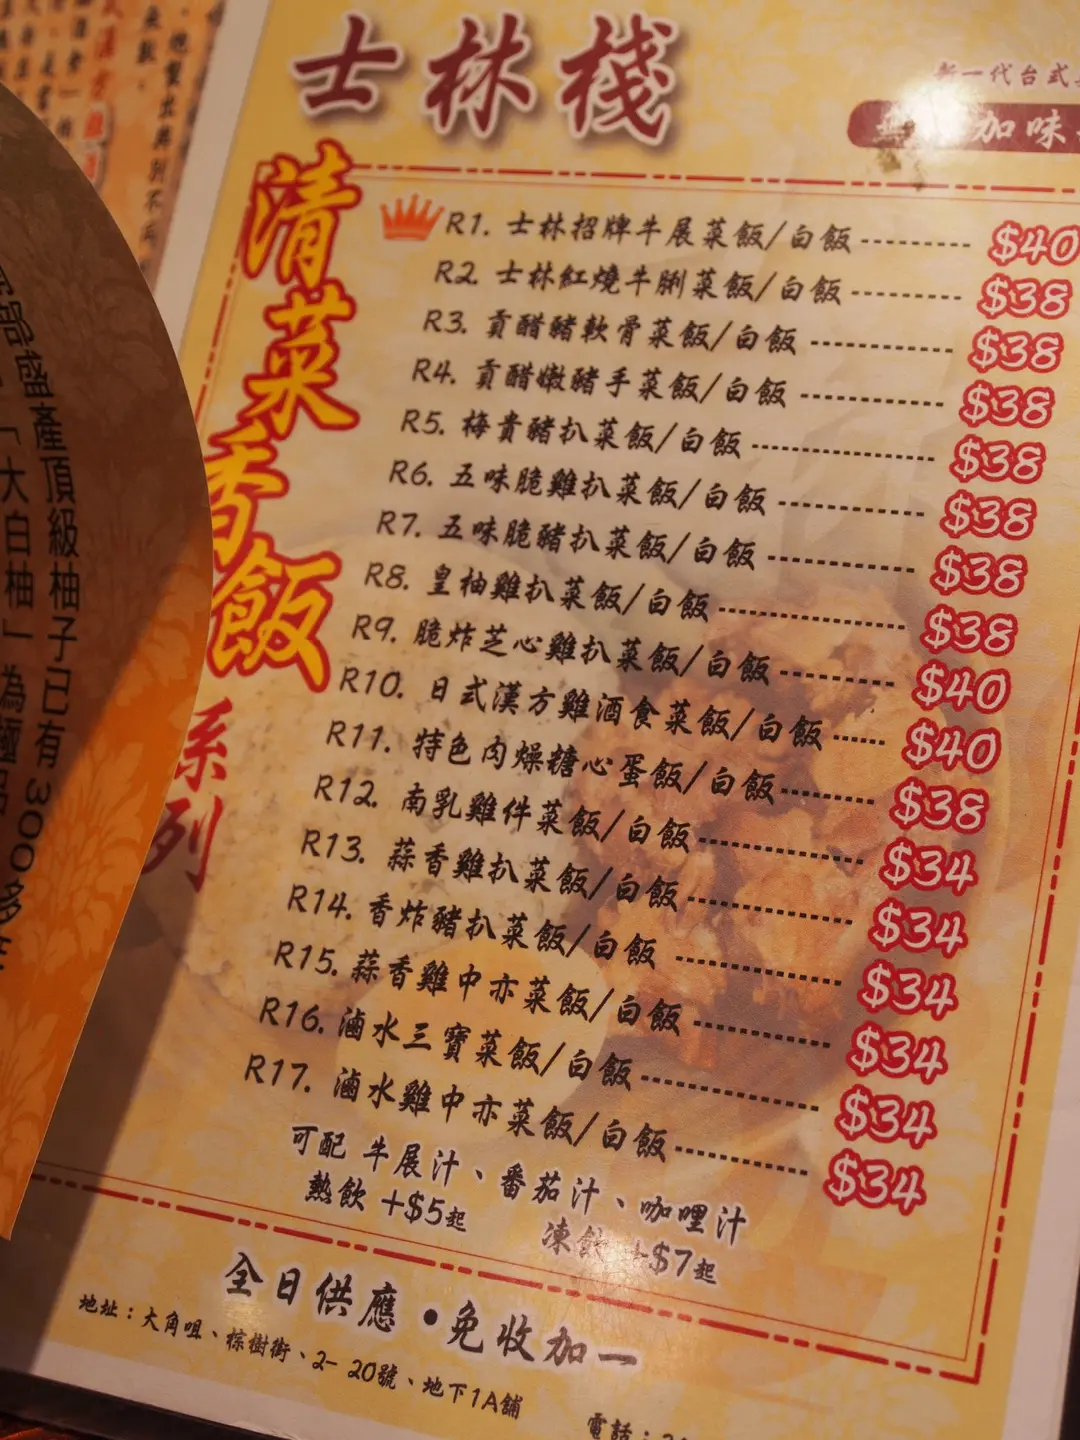 士林棧
新一代台式
加味
清菜香飯系列
R1. 士林招牌牛展菜飯/白飯 $40
R2. 士林紅燒牛脷菜飯/白飯 $38
R3. 貢醋豬軟骨菜飯/白飯 $38
R4. 貢醋嫩豬手菜飯/白飯 $38
R5. 梅貴豬扒菜飯/白飯 $38
R6. 五味脆雞扒菜飯/白飯 $38
R7. 五味脆豬扒菜飯/白飯 $38
R8. 皇柚雞扒菜飯/白飯 $38
R9. 脆炸芝心雞扒菜飯/白飯 $40
R10. 日式漢方雞酒食菜飯/白飯 $40
R11. 特色肉燥糖心蛋飯/白飯 $38
R12. 南乳雞件菜飯/白飯 $34
R13. 蒜香雞扒菜飯/白飯 $34
R14. 香炸豬扒菜飯/白飯 $34
R15. 蒜香雞中亦菜飯/白飯 $34
R16. 滷水三寶菜飯/白飯 $34
R17. 滷水雞中亦菜飯/白飯 $34
可配 牛展汁、番茄汁、咖哩汁
熱飲 +$5起 凍飲 +$7起
全日供應·免收加一
地址：大角咀、棕樹街、2-20號、地下1A舖
電話：
部盛產頂級柚子已有300多年
「大白柚」為極品